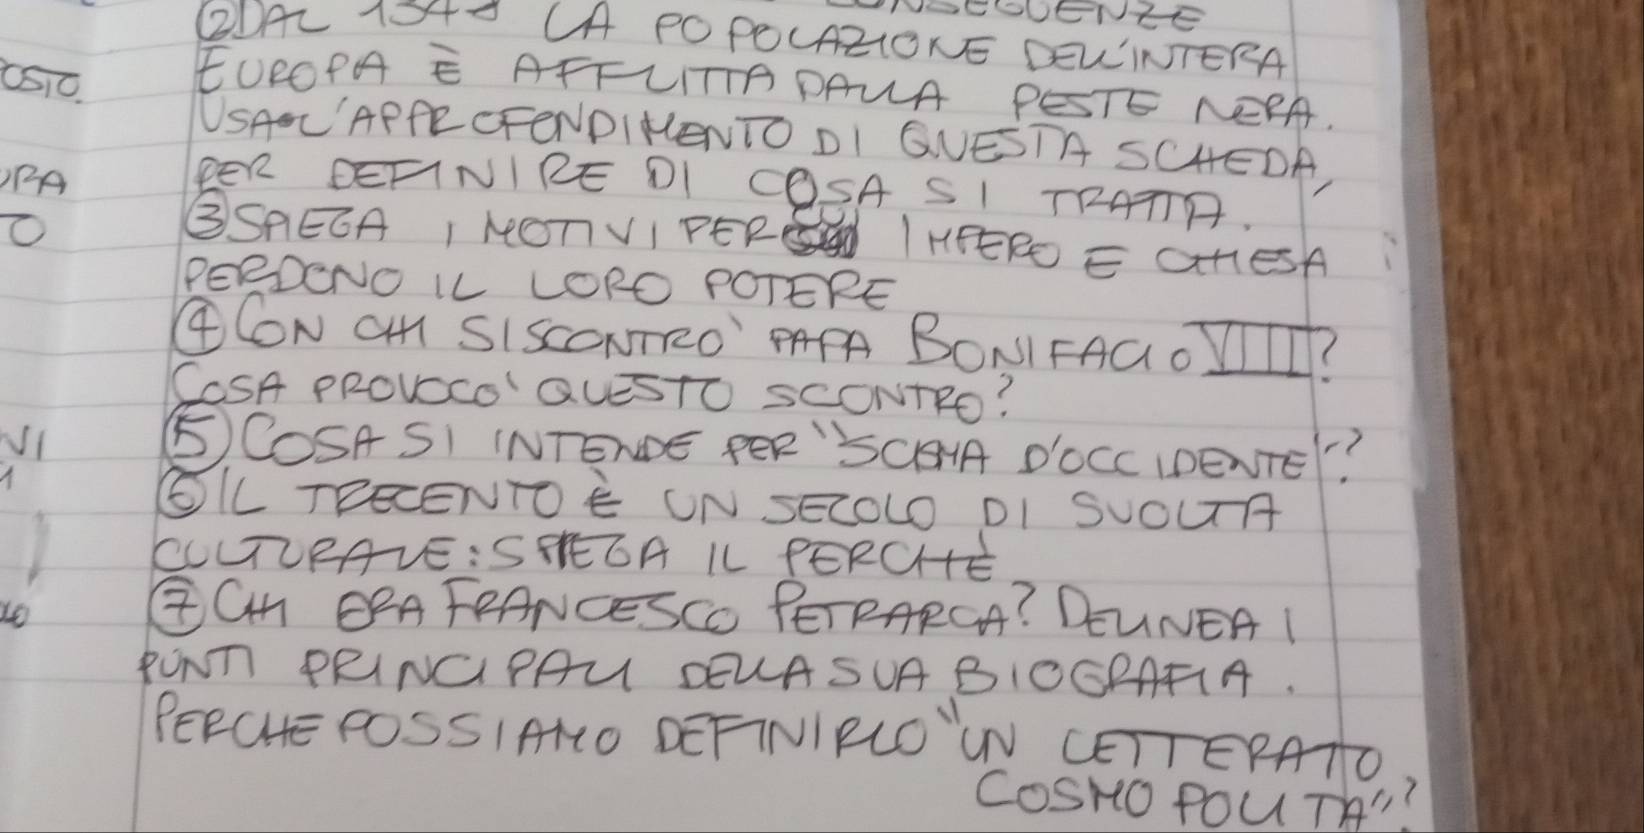 CONSEGUENZE
②DAL 1348 LA POPOLAZIONE DELL'INTERA
OSTO. EUROPA È AFFLITTA DALLA PESTE NERA.
USA L'APPROFONDIMENTO DI QUESTA SCHEDA,
ORA PER DEFINIRE DI COSA SI TRATTA.
O ③SPIEGA I MOTIVI PER CUI IMPERO E CHIESA
PERDONO IL LORO POTERE
④CON CHI SI SCONTRO' PAPA BONIFACIO VIII?
COSA PROVOCO' QUESTO SCONTRO?
VI ⑤COSA SI INTENDE PER "SCISMA D'OCCIDENTE"?
⑥IL TRECENTO È UN SECOLO DI SVOLTA
CULTURALE: SPIEGA IL PERCHÈ
⑦CHI ERA FRANCESCO PETRARCA? DELINEA I
PUNTI PRINCIPALI DELLA SUA BIOGRAFIA.
PERCHE POSSIAMO DEFINIRLO "UN LETTERATO
COSMOPOLITA"?